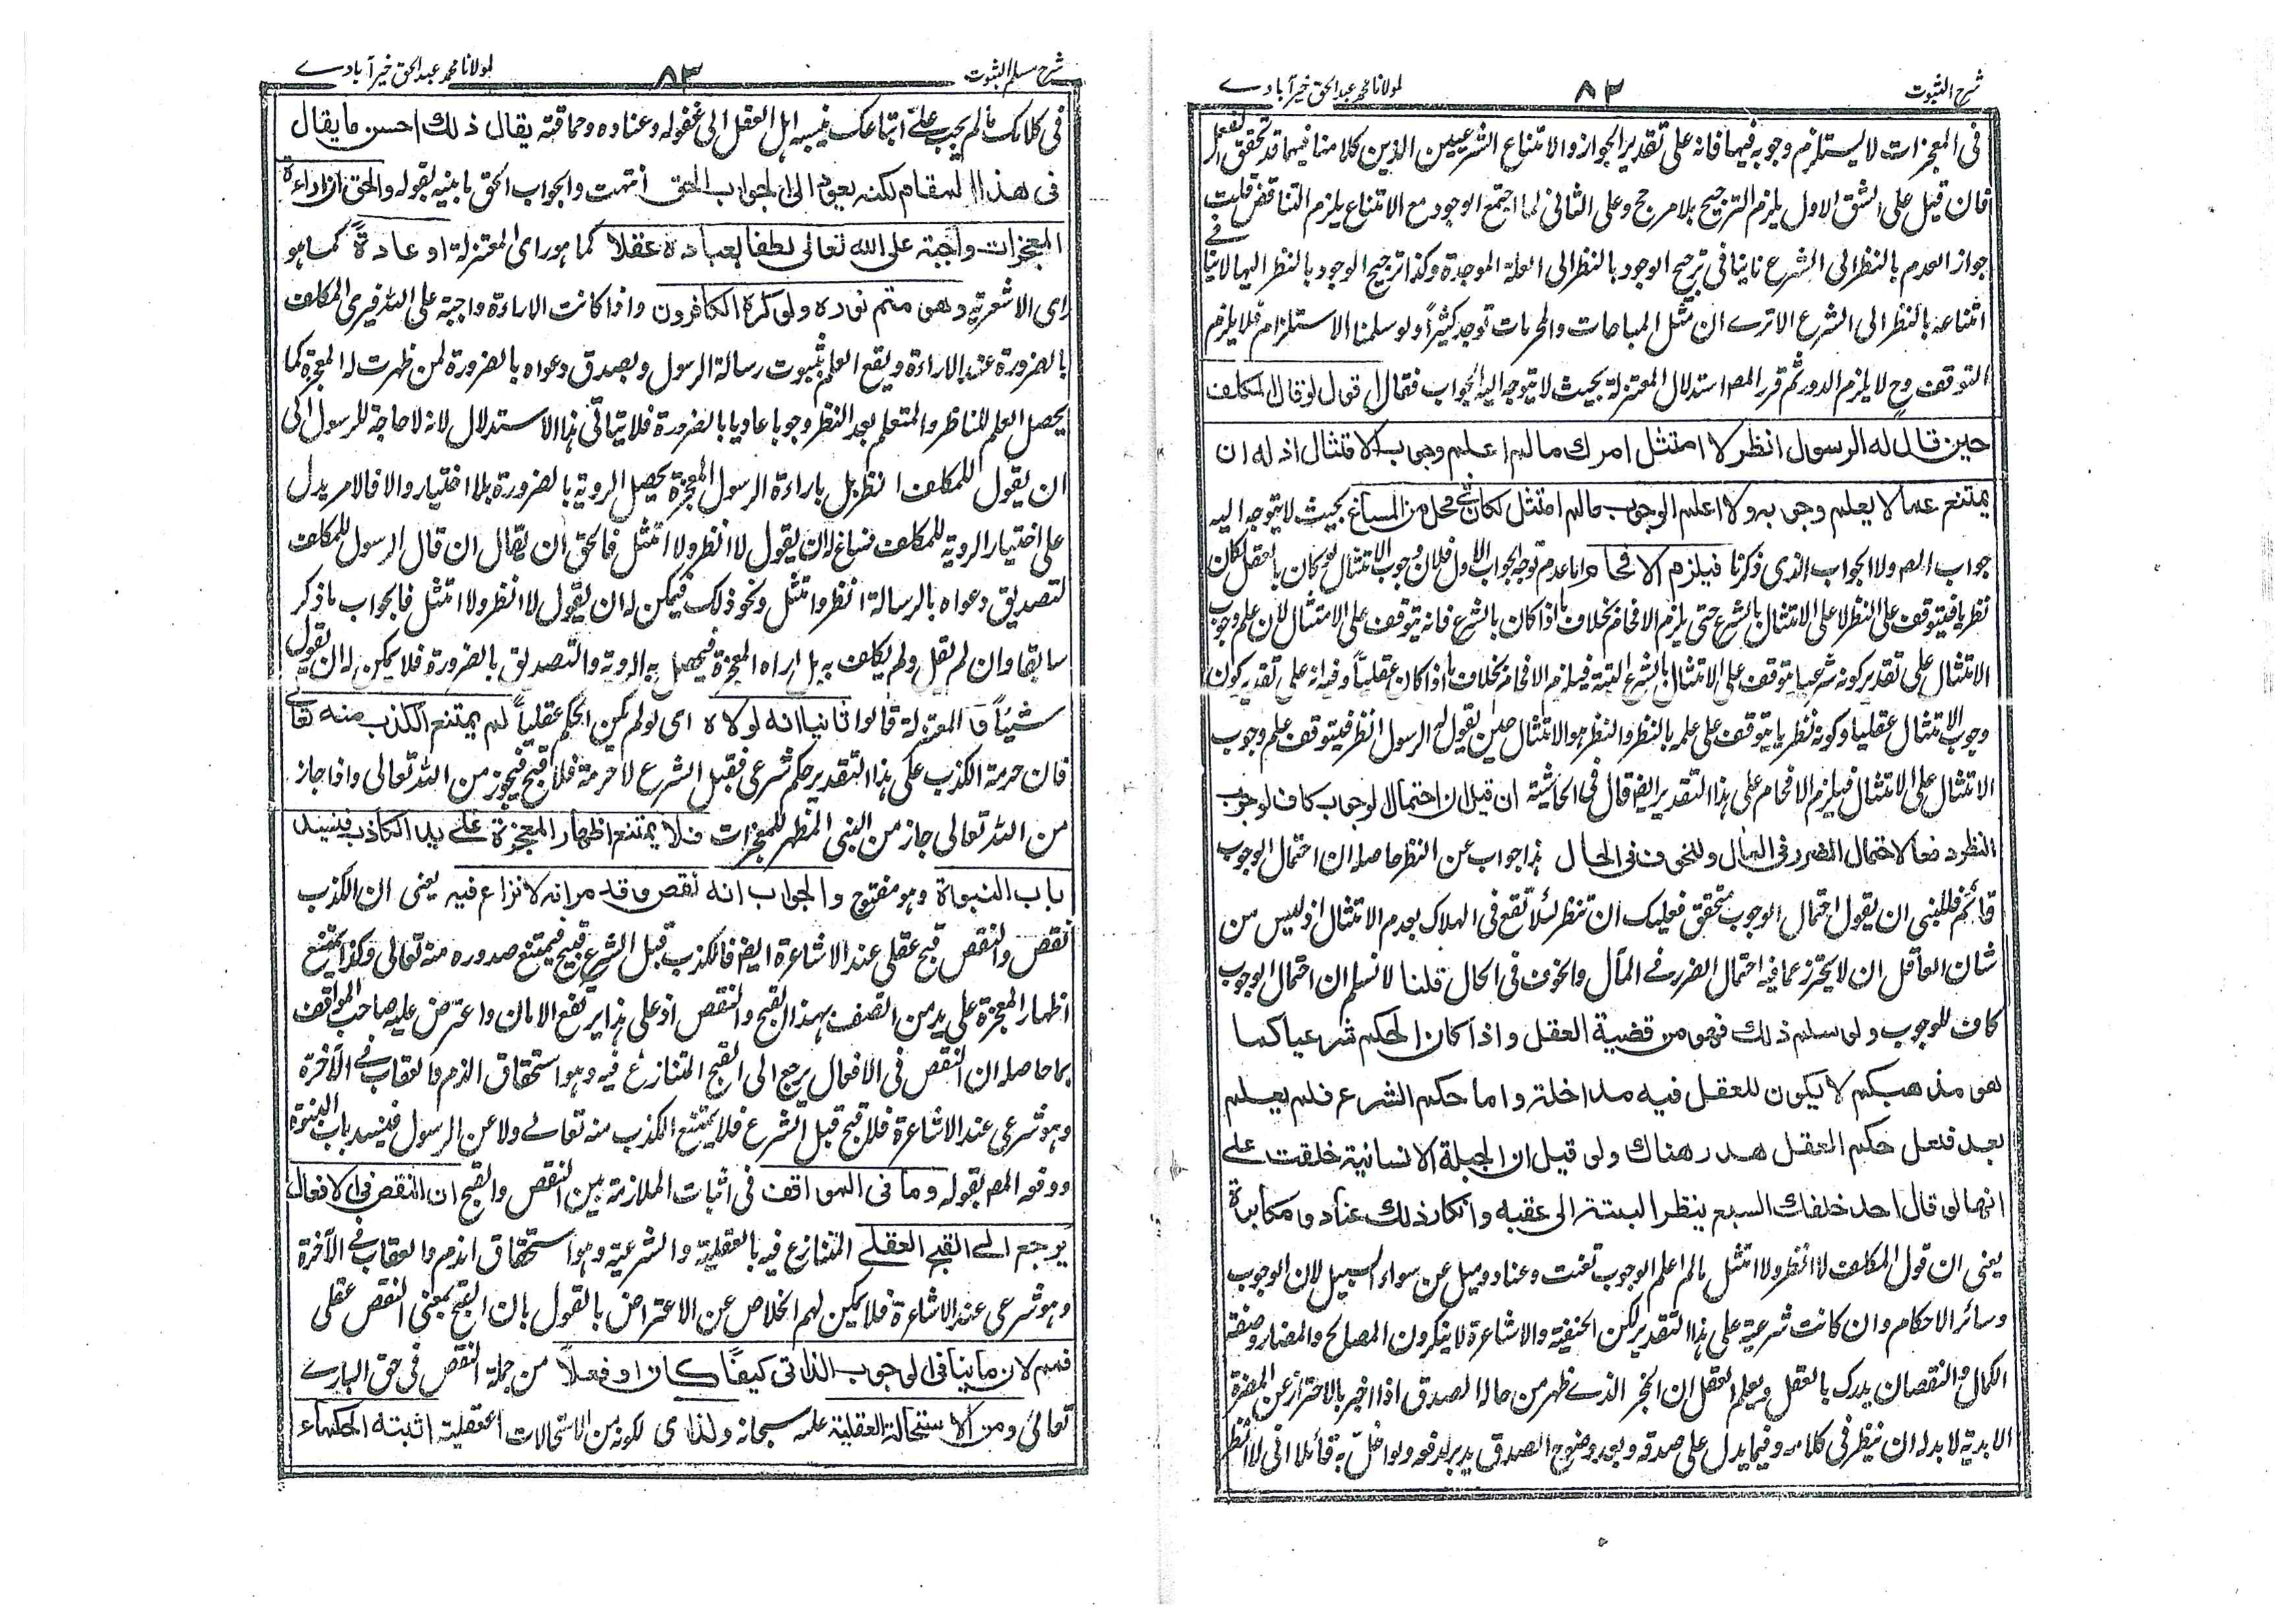 شرح الثبوت ٨٢ لمولانا محمد عبدالحق خيرآبادے
فى المعجزات لا يستلزم وجوبه فيها فانه على تقدير الجواز والامتناع الشرعيين الذين كلامنا فيهما قد تحقق الفعل
فان قيل على الشق الاول يلزم الترجيح بلا مرجح وعلى الثانى لما اجتمع الوجود مع الامتناع يلزم التناقض قلت
جواز العدم بالنظر الى الشرع لا ينافى ترجيح الوجود بالنظر الى العلة الموجدة وكذا ترجيح الوجود بالنظر اليها لا ينافى
امتناعه بالنظر الى الشرع الا ترے ان مثل المباحات والمحرمات توجد كثيراً ولو سلمنا الاستلزام فلا يلزم
التوقف وح لا يلزم الدور ثم قرر المصـ استدلال المعتزلة بحيث لا يتوجه اليه الجواب فقال اقول لو قال المكلف
حين قال له الرسول انظر لا امتثل امرك مالم اعلم وجوب الامتثال اذ له ان
يمتنع عما لا يعلم وجوبه ولا اعلم الوجوب مالم امتثل لكان فى محل من المساغ بحيث لا يتوجه اليه
جواب المصـ ولا الجواب الذى ذكرنا فيلزم الافحام واما عدم توجه الجواب الاول فلان وجوب الامتثال لو كان بالعقل لكان
نظريا فيتوقف على النظر لا على الامتثال بالشرع حتى يلزم الافحام بخلاف ما اذا كان بالشرع فانه يتوقف على الامتثال لان علم وجوب
الامتثال على تقدير كونه شرعيا يتوقف على الامتثال بالشرع البتة فيلزم الافحام بخلاف ما اذا كان عقلياً وفيه انه على تقدير كون
وجوب الامتثال عقليا وكونه نظريا يتوقف على علمه بالنظر والنظر هو الامتثال حين يقول له الرسول انظر فيتوقف علم وجوب
الامتثال على الامتثال فيلزم الافحام على هذا التقدير ايضا قال فى الحاشية ان قيل ان احتمال الوجوب كاف لوجوب
النظر دفعا لاحتمال الضرر فى المآل وللخوف فى الحال هذا جواب عن النظر حاصله ان احتمال الوجوب
قائم فللنبى ان يقول احتمال الوجوب متحقق فعليك ان تنظر لئلا تقع فى الهلاك بعدم الامتثال اذ ليس من
شان العاقل ان لا يحترز عما فيه احتمال الضرر فے المآل والخوف فى الحال قلنا لا نسلم ان احتمال الوجوب
كاف للوجوب ولو سلم ذلك فهو من قضية العقل واذا كان الحكم شرعيا كما
هو مذهبكم لا يكون للعقل فيه مداخلة واما حكم الشرع فلم يعلم
بعد فلعل حكم العقل هدر هناك ولو قيل ان الجبلة الانسانية خلقت على
انها لو قال احد خلفك السبع ينظر البتة الى عقبه وانكار ذلك عناد ومكابرة
يعنى ان قول المكلف لا انظر ولا امتثل مالم اعلم الوجوب تعنت وعناد وميل عن سواء السبيل لان الوجوب
وسائر الاحكام وان كانت شرعية على هذا التقدير لكن الحنفية والاشاعرة لا ينكرون المصالح والمضار وصفة
الكمال والنقصان يدرك بالعقل ويعلم العقل ان المخبر الذے ظهر من حاله الصدق اذا اخبر بالاحتراز عن المضرة
الابدية لا بد له ان ينظر فى كلامه وفيما يدل على صدقه وبعد وضوح الصدق يدبر لدفعه ولو اخل به قائلا انى لا انظر
شرح مسلم الثبوت ٨٣ لمولانا محمد عبدالحق خيرآبادے
فى كلامك مالم يجب علىّ اتباعك ينسبه اهل العقل الى غفوله وعناده وحماقته يقال ذلك احسن ما يقال
فى هذا المقام لكنه يعود الى الجواب الحق انتهت والجواب الحق ما بينه بقوله والحق ان اراءة
المعجزات واجبة على الله تعالى لطفا بعباده عقلا كما هو راى المعتزلة او عادةً كما هو
راى الاشعرية وهو متم نوره ولو كره الكافرون واذا كانت الاراءة واجبة على الله فيرى المكلف
بالضرورة عند الاراءة ويقع العلم بثبوت رسالة الرسول وبصدق دعواه بالضرورة لمن ظهرت له المعجزة كما
يحصل العلم للناظر والمتعلم بعد النظر وجوبا عاديا بالضرورة فلا يتاتى هذا الاستدلال لانه لا حاجة للرسول الى
ان يقول للمكلف انظر بل باراءة الرسول المعجزة يحصل الروية بالضرورة بلا اختيار والا فالامر يدل
على اختيار الروية للمكلف فساغ له ان يقول لا انظر ولا امتثل فالحق ان يقال ان قال الرسول للمكلف
لتصديق دعواه بالرسالة انظر وامتثل ونحو ذلك فيمكن له ان يقول لا انظر ولا امتثل فالجواب ما ذكر
سابقا وان لم يقل ولم يكلف به بل اراه المعجزة فيحصل به الروية والتصديق بالضرورة فلا يمكن له ان يقول
شيئاً و المعتزلة قالوا ثانيا انه لولاه اى لو لم يكن الحكم عقلياً لم يمتنع الكذب منه تعالى
فان حرمة الكذب على هذا التقدير حكم شرعى فقبل الشرع لا حرمة فلا قبح فيجوز من الله تعالى واذا جاز
من الله تعالى جاز من النبى المظهر للمعجزات فلا يمتنع اظهار المعجزة على يد الكاذب فينسد
باب النبوة وهو مفتوح والجواب انه نقص وقد مر انه لا نزاع فيه يعنى ان الكذب
نقص والنقص قبح عقلى عند الاشاعرة ايضا فالكذب قبل الشرع قبيح فيمتنع صدوره منه تعالى وكذا يمتنع
اظهار المعجزة على يد من اتصف بهذا القبح والنقص اذ على هذا يرتفع الامان واعترض عليه صاحب المواقف
بما حاصله ان النقص فى الافعال يرجع الى القبح المتنازع فيه وهو استحقاق الذم والعقاب فے الآخرة
وهو شرعى عند الاشاعرة فلا قبح قبل الشرع فلا يمتنع الكذب منه تعالے ولا عن الرسول فينسد باب النبوة
ودفعه المصـ بقوله وما فى المواقف فى اثبات الملازمة بين النقص والقبح ان النقص فى الافعال
يرجع الے القبح العقلے المتنازع فيه بالعقلية والشرعية وهو استحقاق الذم والعقاب فے الآخرة
وهو شرعى عند الاشاعرة فلا يمكن لهم الخلاص عن الاعتراض بالقول بان القبح بمعنى النقص عقلى
فمنع لان ما ينافى الوجوب الذاتى كيفاً كان او فعلاً من جملة النقص فى حق البارے
تعالى ومن الاستحالة العقلية عليه سبحانه ولذا اى لكونه من الاستحالات العقلية اثبته الحكماء